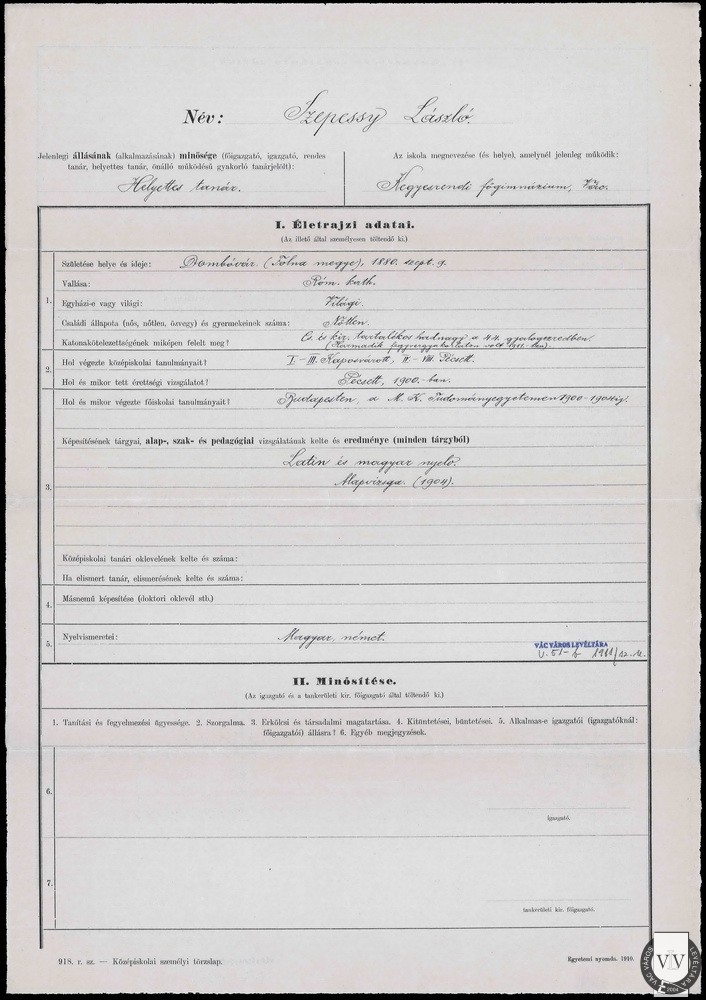 Név: Szepessy László.
Jelenlegi állásának (alkalmazásának) minősége (főigazgató, igazgató, rendes
tanár, helyettes tanár, önálló működésű gyakorló tanárjelölt):
Helyettes tanár.
Az iskola megnevezése (és helye), amelynél jelenleg működik:
Kegyesrendi főgimnázium, Vác.
I. Életrajzi adatai.
(Az illető által személyesen töltendő ki.)
1.
Születése helye és ideje: Dombóvár. (Tolna megye), 1880. szept. 9.
Vallása: Róm. kath.
Egyházi-e vagy világi: Világi.
Családi állapota (nős, nőtlen, özvegy) és gyermekeinek száma: Nőtlen.
Katonakötelezettségének miképen felelt meg? Cs. és kir. tartalékos hadnagy a 44. gyalogezredben.
(Harmadik fegyvergyakorlaton volt 1911-ben).
2.
Hol végezte középiskolai tanulmányait? I-III. Kaposvárott, IV-VIII. Pécsett.
Hol és mikor tett érettségi vizsgálatot? Pécsett, 1900.-ban.
Hol és mikor végezte főiskolai tanulmányait? Budapesten, a M. K. Tudományegyetemen 1900-1904ig.
3.
Képesítésének tárgyai, alap-, szak- és pedagógiai vizsgálatának kelte és eredménye (minden tárgyból)
Latin és magyar nyelv.
Alapvizsga. (1904).
Középiskolai tanári oklevelének kelte és száma:
Ha elismert tanár, elismerésének kelte és száma:
4.
Másnemű képesítése (doktori oklevél stb.)
5.
Nyelvismeretei: Magyar, német.
VÁC VÁROS LEVÉLTÁRA
V. 51-b 1911/12
II. Minősítése.
(Az igazgató és a tankerületi kir. főigazgató által töltendő ki.)
1. Tanítási és fegyelmezési ügyessége. 2. Szorgalma. 3. Erkölcsi és társadalmi magatartása. 4. Kitüntetései, büntetései. 5. Alkalmas-e igazgatói (igazgatóknál:
főigazgatói) állásra? 6. Egyéb megjegyzések.
6.
igazgató.
7.
tankerületi kir. főigazgató.
918. r. sz. — Középiskolai személyi törzslap.
Egyetemi nyomda. 1910
VÁC VÁROS LEVÉLTÁRA
VVL
2004